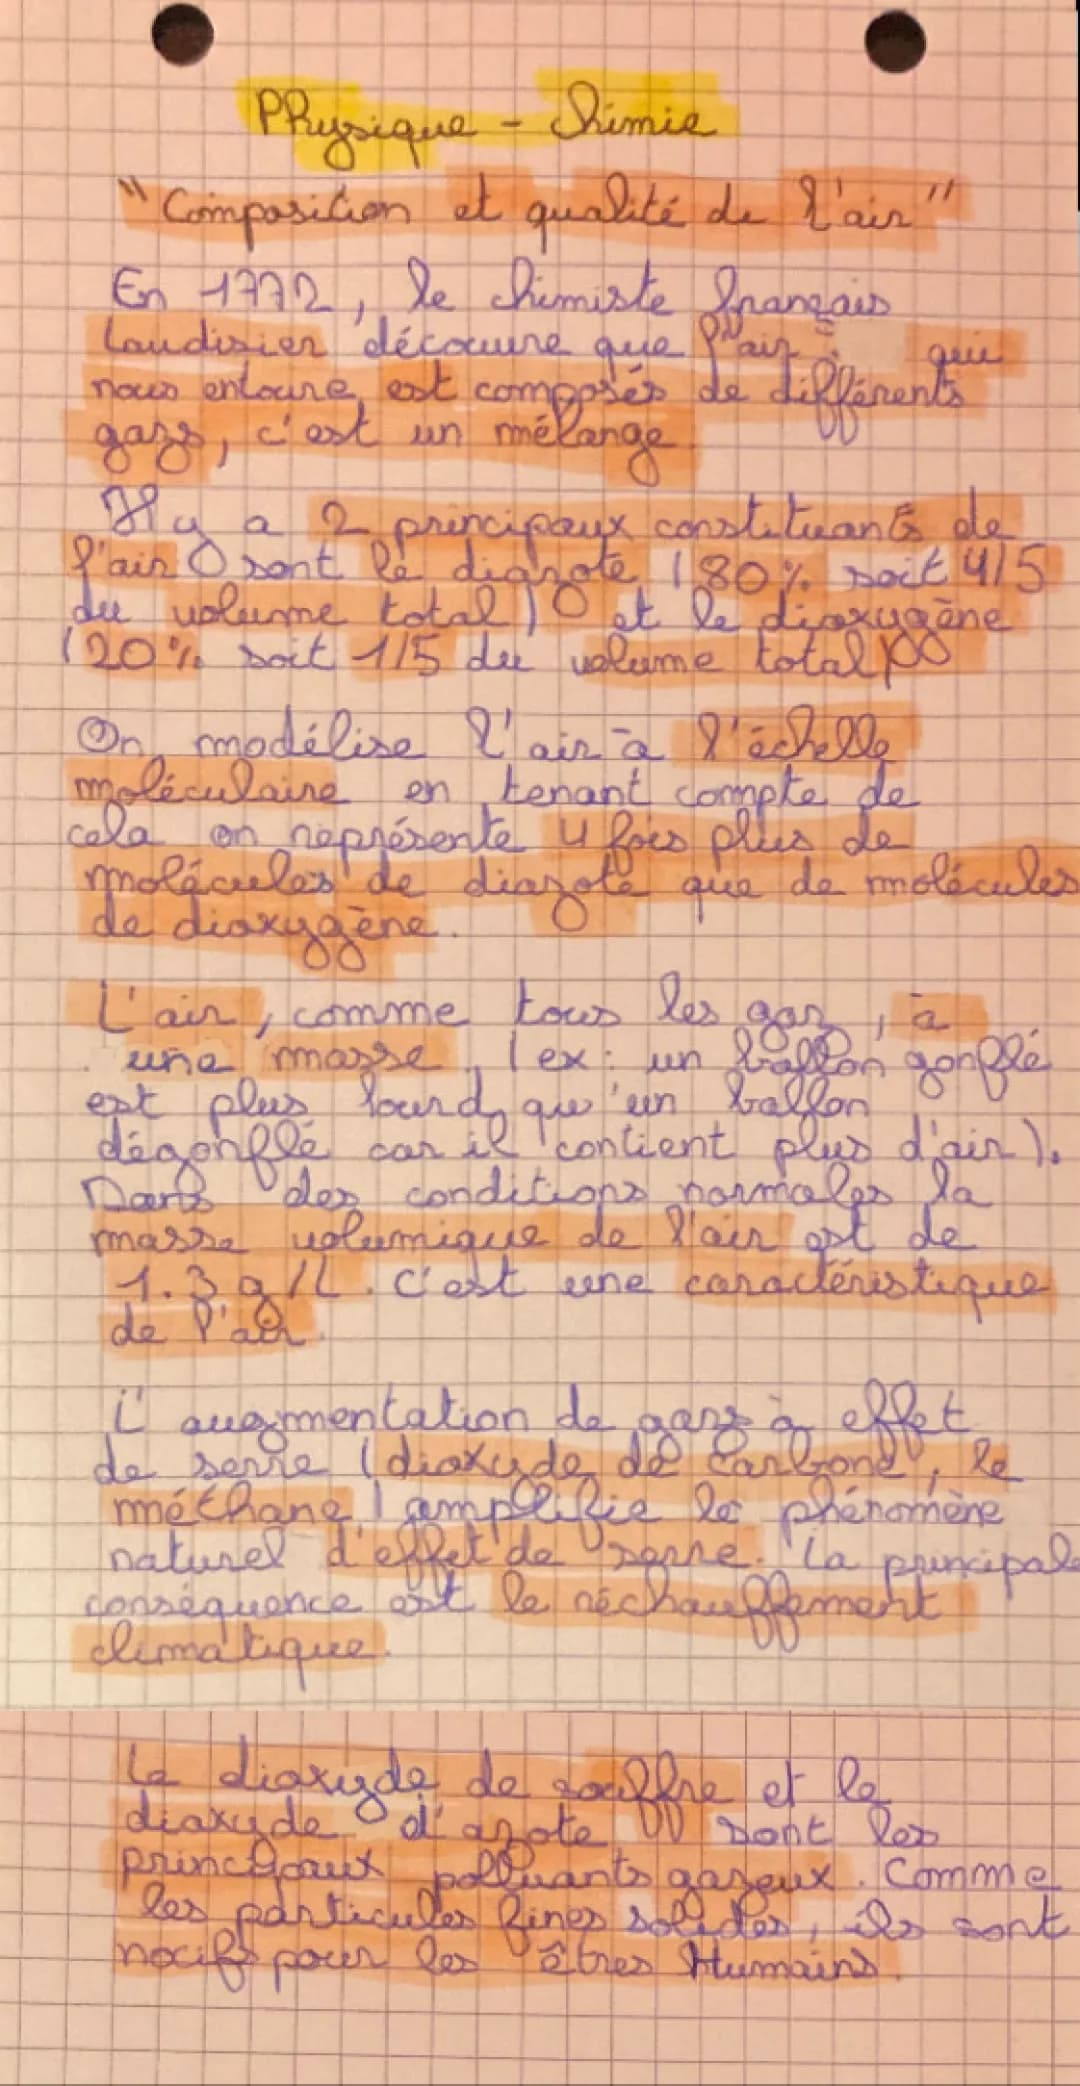 PHysique - Chimie
"Composition et qualité de l'air"
En 1772, le chimiste français
Laudisier découvre que l'air qui
nous entoure est composés de différents
gazs, c'est un mélange.
Il y a 2 principaux constituants de
l'air sont le diazote (80% soit 4/5
du volume total) et le dioxygène
(20% soit 1/5 du volume total)
On modélise l'air à l'échelle
moléculaire en tenant compte de
cela on représente 4 fois plus de
molécules de diazote que de molécules
de dioxygène.
L'air, comme tous les gaz, à
une masse. (ex: un ballon gonflé
est plus lourd qu'un ballon
dégonflé car il contient plus d'air).
Dans des conditions normales la
masse volumique de l'air est de
1.3 g/L. C'est une caractéristique
de l'air.
L'augmentation de gazs à effet
de serre (dioxyde de carbone, le
méthane) amplifie le phénomène
naturel d'effet de serre. La principale
conséquence est le réchauffement
climatique.
Le dioxyde de souffre et le
dioxyde d'azote sont les
principaux polluants gazeux. Comme
les particules fines solides, ils sont
nocifs pour les êtres Humains.